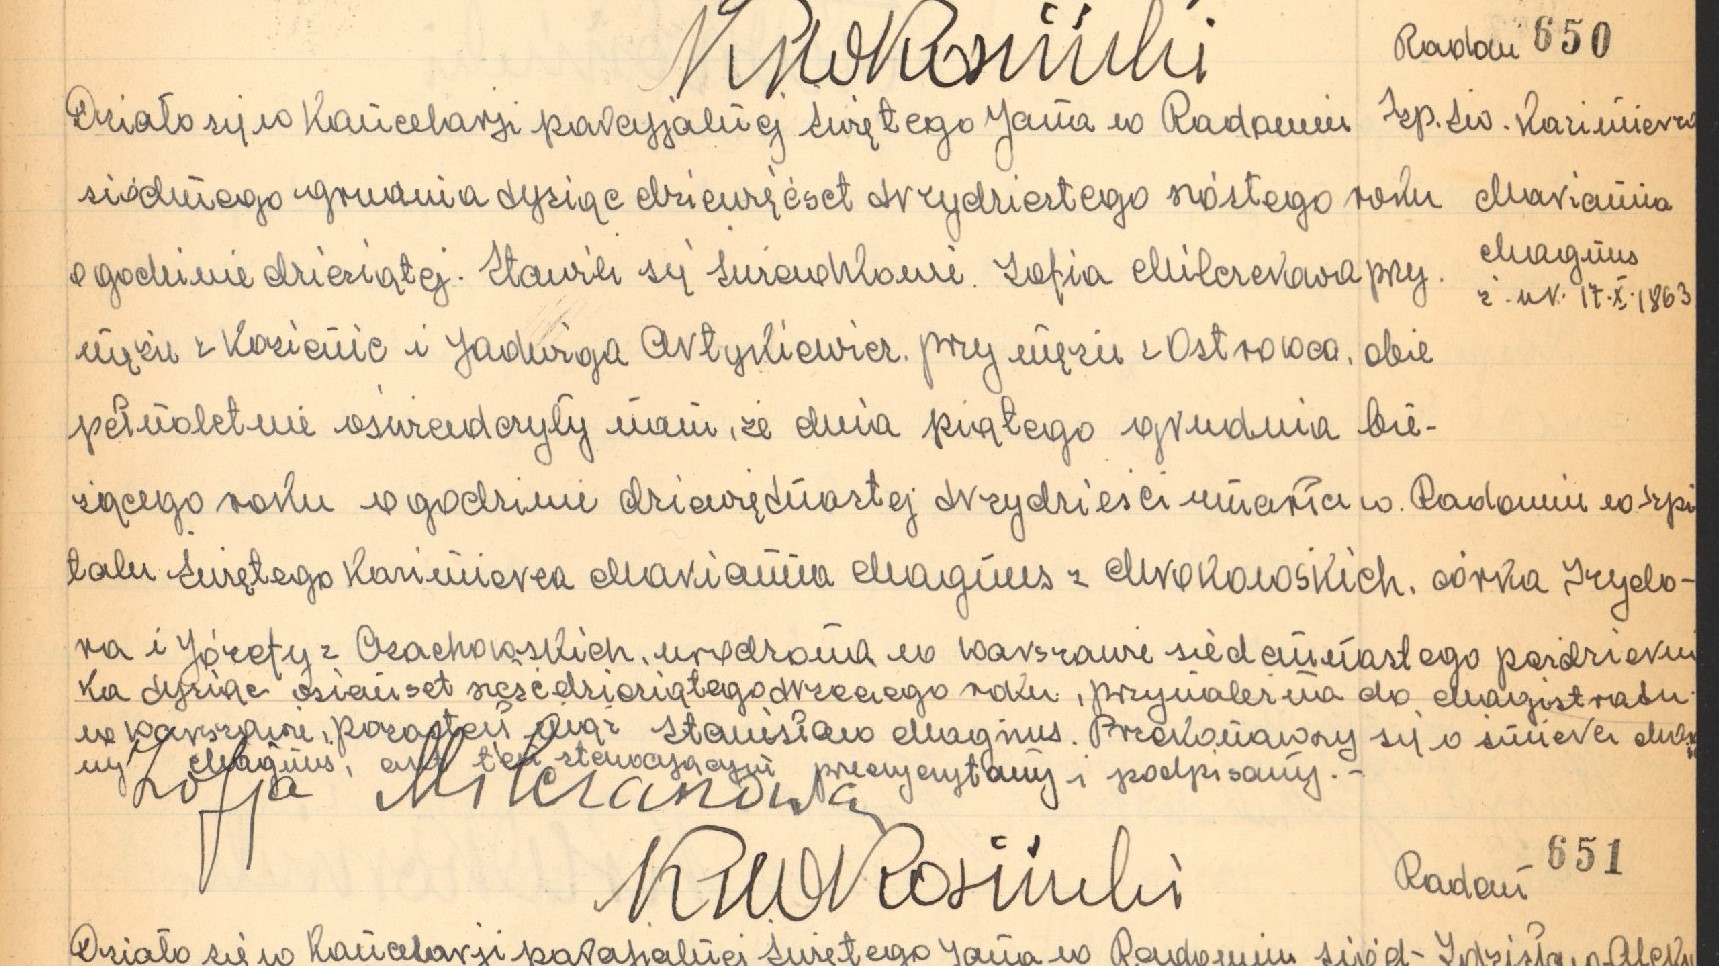 Radom 650
Działo się w Kancelarji parafjalnej świętego Jana w Radomiu
Szp. św. Kazimierza
siódmego grudnia tysiąc dziewięćset trzydziestego szóstego roku
Marianna
o godzinie dziesiątej. Stawili się świadkowie. Zofia Milczekowa przy.
Magnus
z. ur. 17.X.1863
mężu z Kozienic i Jadwiga Artykiewicz, przy mężu z Ostrowca, obie
pełnoletnie oświadczyły nam, że dnia piątego grudnia bie-
żącego roku o godzinie dziewiętnastej trzydzieści umarła w. Radomiu w szpi
talu świętego Kazimierza Marianna Magnus z Mrokowskich, córka Izydo-
ra i Józefy z Czachowskich, urodzona w Warszawie siedemnastego październi
ka tysiąc osiemset sześćdziesiątego trzeciego roku, przynależna do Magistratu
w Warszawie, pozostał mąż Stanisław Magnus. Przekonawszy się o śmierci Mary
ny Magnus, akt ten stawającym przeczytany i podpisany. -
Zofja
Radom 651
Działo się w Kancelarji parafialnej świętego Jana w Radomiu siód-